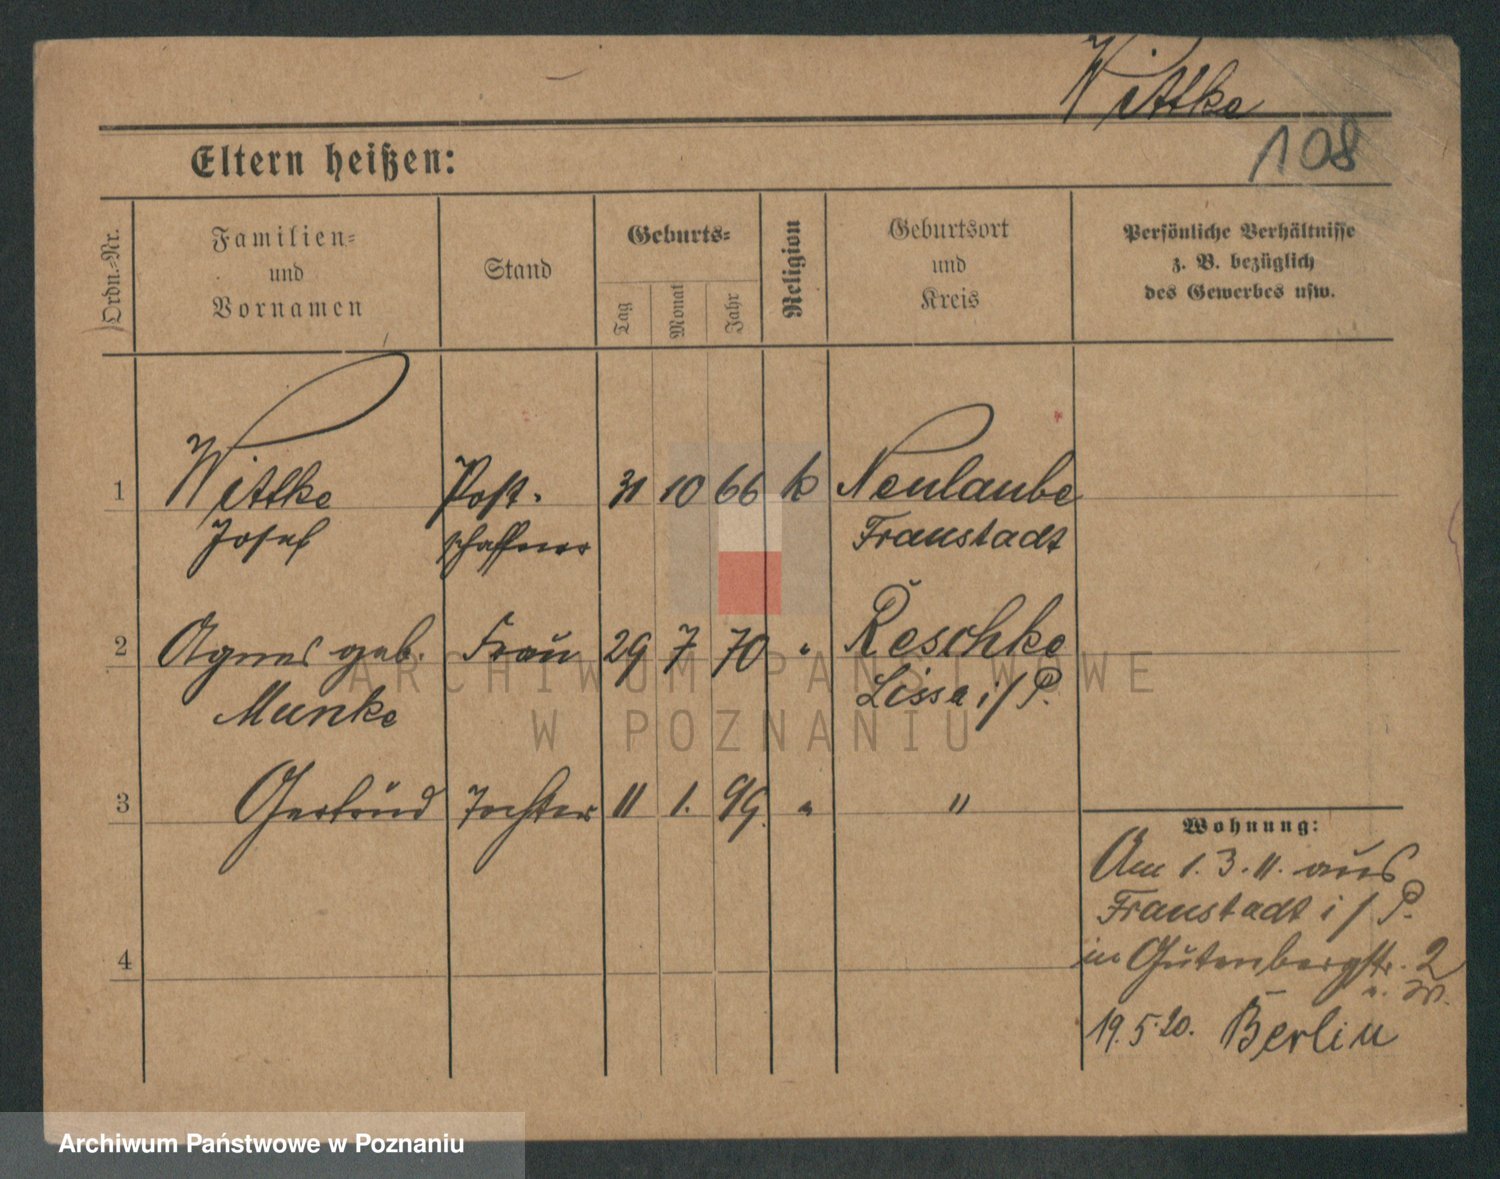 Wittke
108
Eltern heißen:
Ordn.-Nr.
Familien-
und
Vornamen
Stand
Geburts-
Tag
Monat
Jahr
Religion
Geburtsort
und
Kreis
Persönliche Verhältnisse
z. B. bezüglich
des Gewerbes usw.
1 Wittke Post- 31 10 66 k Neulaube
Josef schaffner Fraustadt
2 Agnes geb. Frau 29 7 70 " Reschke
Munke Lissa i/P.
3 Gertrud Tochter 11 1. 99. " "
4
Wohnung:
Am 1.3.11. aus
Fraustadt i/P.
in Gutenbergstr. 2
19.5.20. Berlin
ARCHIWUM PAŃSTWOWE
W POZNANIU
Archiwum Państwowe w Poznaniu